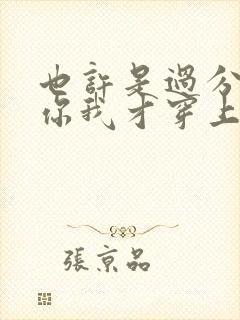 也許是過分
你我才穿上
張京品